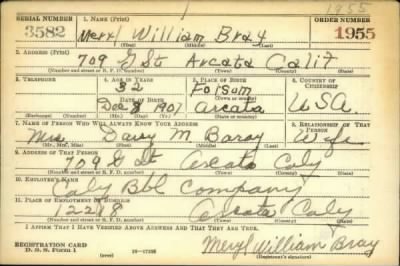 1955
SERIAL NUMBER 1. NAME (Print) ORDER NUMBER
3582 Meryl William Bray 1955
(First) (Middle) (Last)
2. ADDRESS (Print)
709 G St Arcata Calif
(Number and street or R. F. D. number) (Town) (County) (State)
3. TELEPHONE 4. AGE IN YEARS 5. PLACE OF BIRTH 6. COUNTRY OF CITIZENSHIP
32 Folsom
DATE OF BIRTH
Dec 1907 Arcata USA
(Exchange) (Number) (Mo.) (Day) (Yr.) (State or country)
7. NAME OF PERSON WHO WILL ALWAYS KNOW YOUR ADDRESS 8. RELATIONSHIP OF THAT PERSON
Mrs Daisy M Baray Wife
(Mr., Mrs., Miss) (First) (Middle) (Last)
9. ADDRESS OF THAT PERSON
709 G St Arcata Caly
(Number and street or R. F. D. number) (Town) (County) (State)
10. EMPLOYER'S NAME
Caly Bbl Company
11. PLACE OF EMPLOYMENT OR BUSINESS
Arcata Caly
(Number and street or R. F. D. number) (Town) (County) (State)
I AFFIRM THAT I HAVE VERIFIED ABOVE ANSWERS AND THAT THEY ARE TRUE.
REGISTRATION CARD
D. S. S. Form 1 (over) Meryl William Bray
(Registrant's signature)